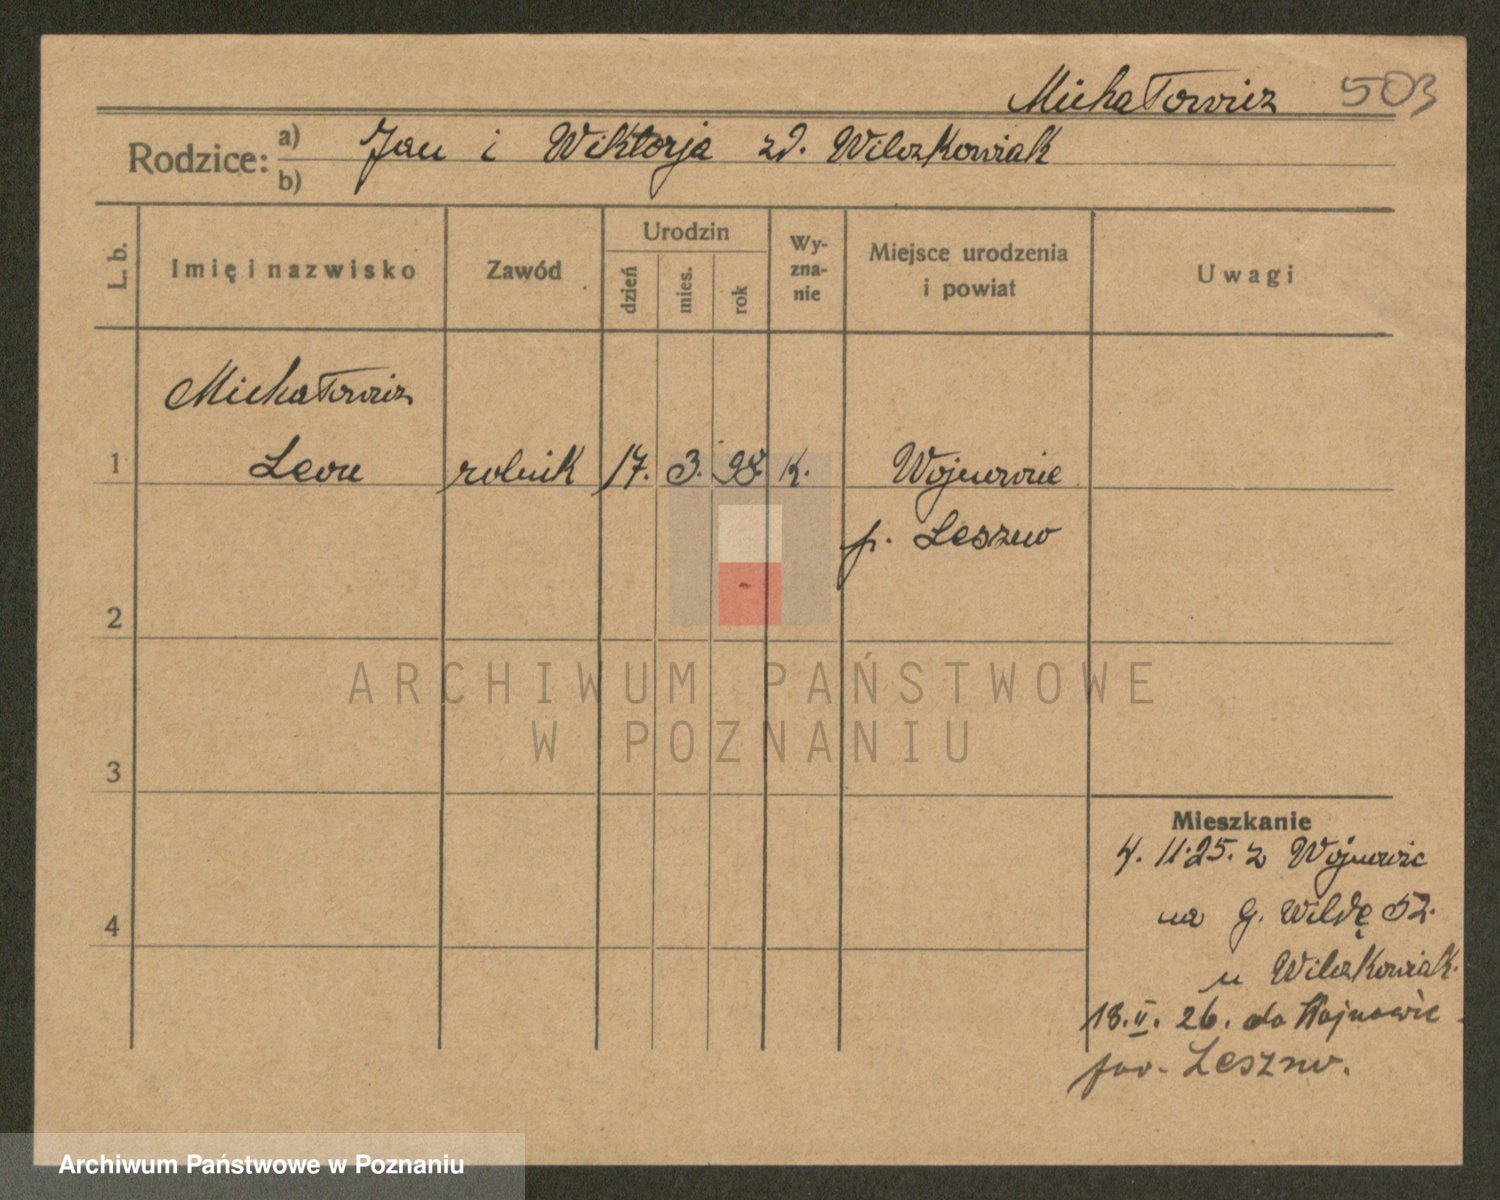 Michałowicz 503
Rodzice: a) Jan i Wiktorja zd. Wilczkowiak
b)
L. b.
Imię i nazwisko
Zawód
Urodzin
dzień
mies.
rok
Wy-
zna-
nie
Miejsce urodzenia
i powiat
Uwagi
Michałowicz
1 Leon rolnik 17. 3. 98. k. Wojnowice
p. Leszno
2
ARCHIWUM PAŃSTWOWE
W POZNANIU
3
Mieszkanie
4. 11.25. z Wojnowic
na G. Wildę 52.
4
u Wilczkowiak.
18.II. 26. do Wojnowic
pow. Leszno.
Archiwum Państwowe w Poznaniu